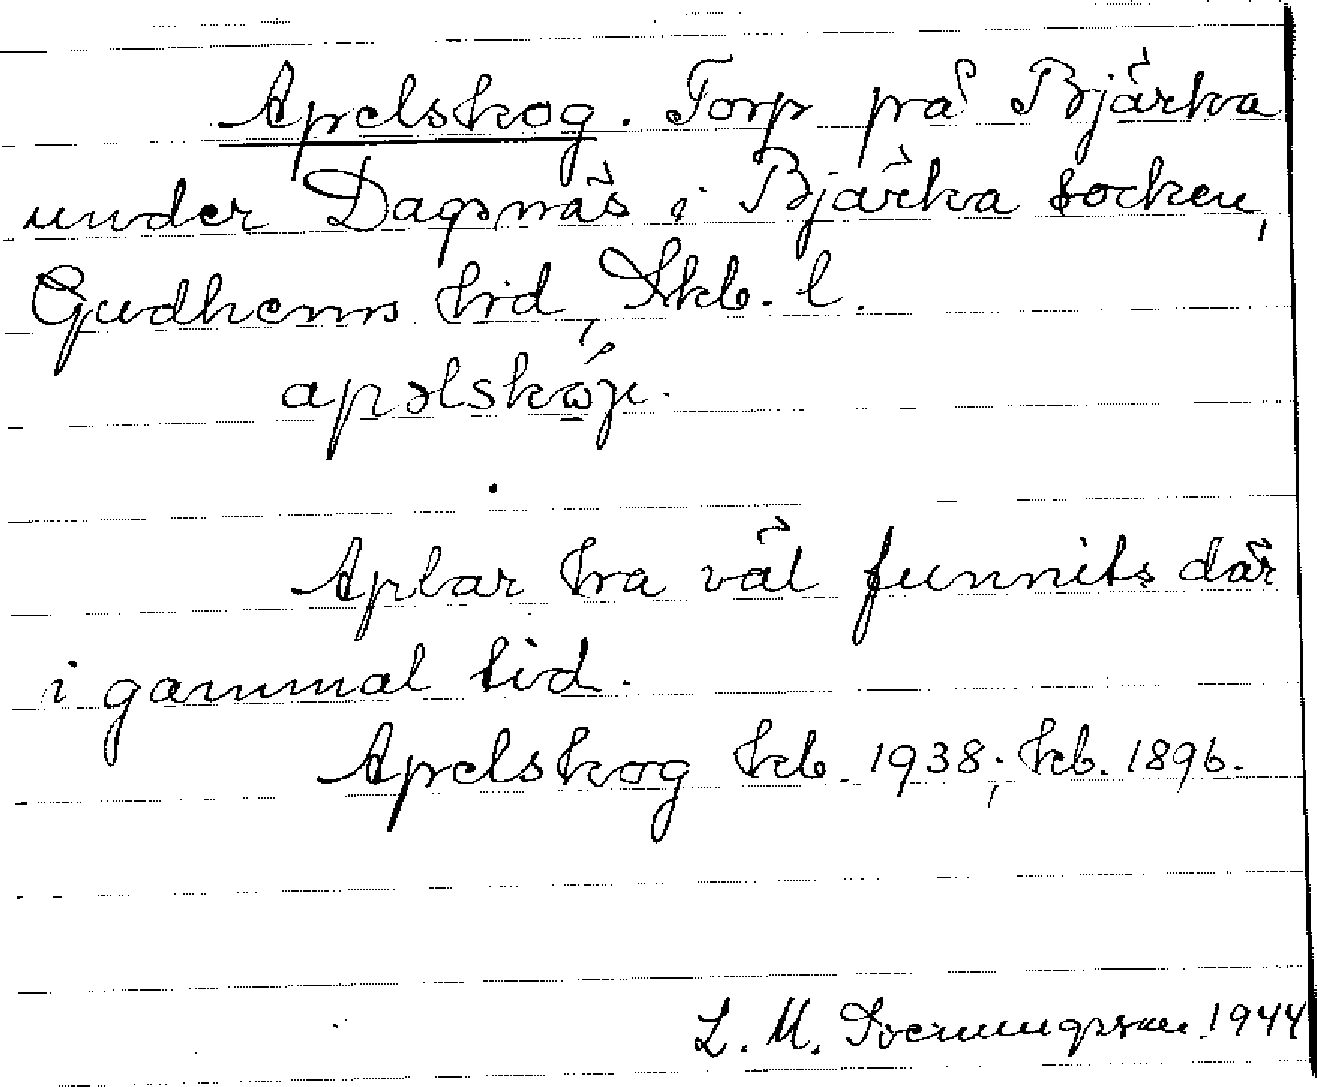 Apelskog. Torp på Bjärka
under Dagsnäs i Bjärka socken,
Gudhems hd, Skb. l.
Aplar ha väl funnits där
i gammal tid.
Apelskog kb. 1938; kb. 1896.
L. M. 1944